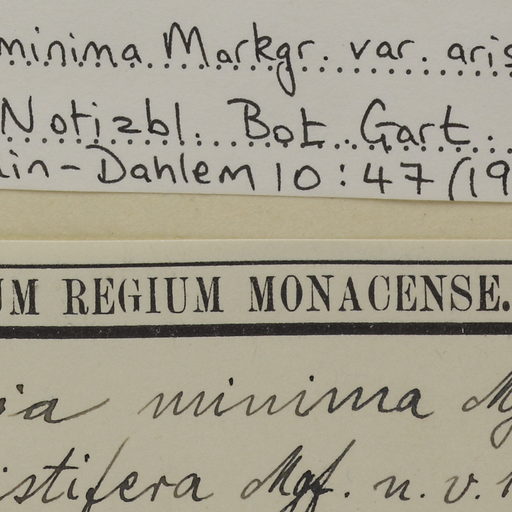 minima Markgr. var. aris
Notizbl. Bot. Gart.
lin-Dahlem 10:47 (19
UM REGIUM MONACENSE.
ia minima M
istifera Mgf. n. v.